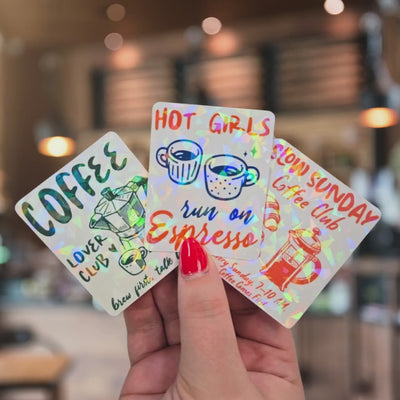 COFFEE
LOVER
CLUB
brew
talk
HOT GIRLS
run on
Espresso
SLOW SUNDAY
Coffee Club
Every Sunday 7-10